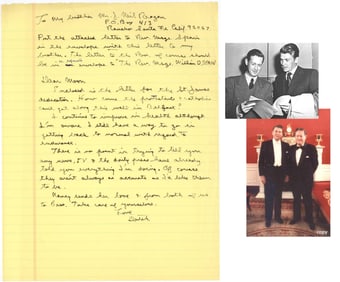 To my brother Mr. J. Neil Reagan
P.O. Box 413
Rancho Santa Fe Calif. 92067
Put the attached letter to Rev. Wage
in the envelope with this letter to my
brother. The letter to the Rev. of course should
be in an envelope to "The Rev. Wage
Dear Moon.
I enclosed is the letter for the St. James
dedication. How come the protestants & catholics
can't get along this well in Belfast?
I continue to improve in health although
I'm aware I still have a way to go in
getting back to normal with regard to
endurance.
There is no point in trying to tell you
any news, TV & the daily press have already
told you everything I'm doing. Of course
they aren't always as accurate as I'd like them to
be.
Nancy sends her love & from both of us
to Bess. Take care of yourselves.
Love
Dutch